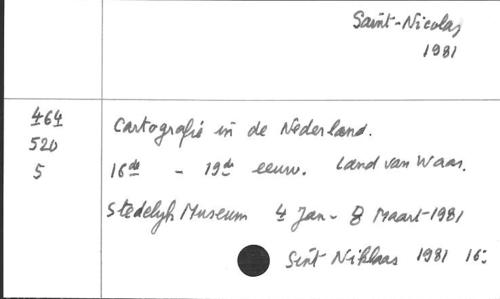 Saint-Nicolas
1981
464
520
5
Cartografie in de Nederland.
16de - 19de eeuw. Land van Waas.
Stedelijk Museum 4 Jan - 8 Maart-1981
Sint Niklaas 1981 16: